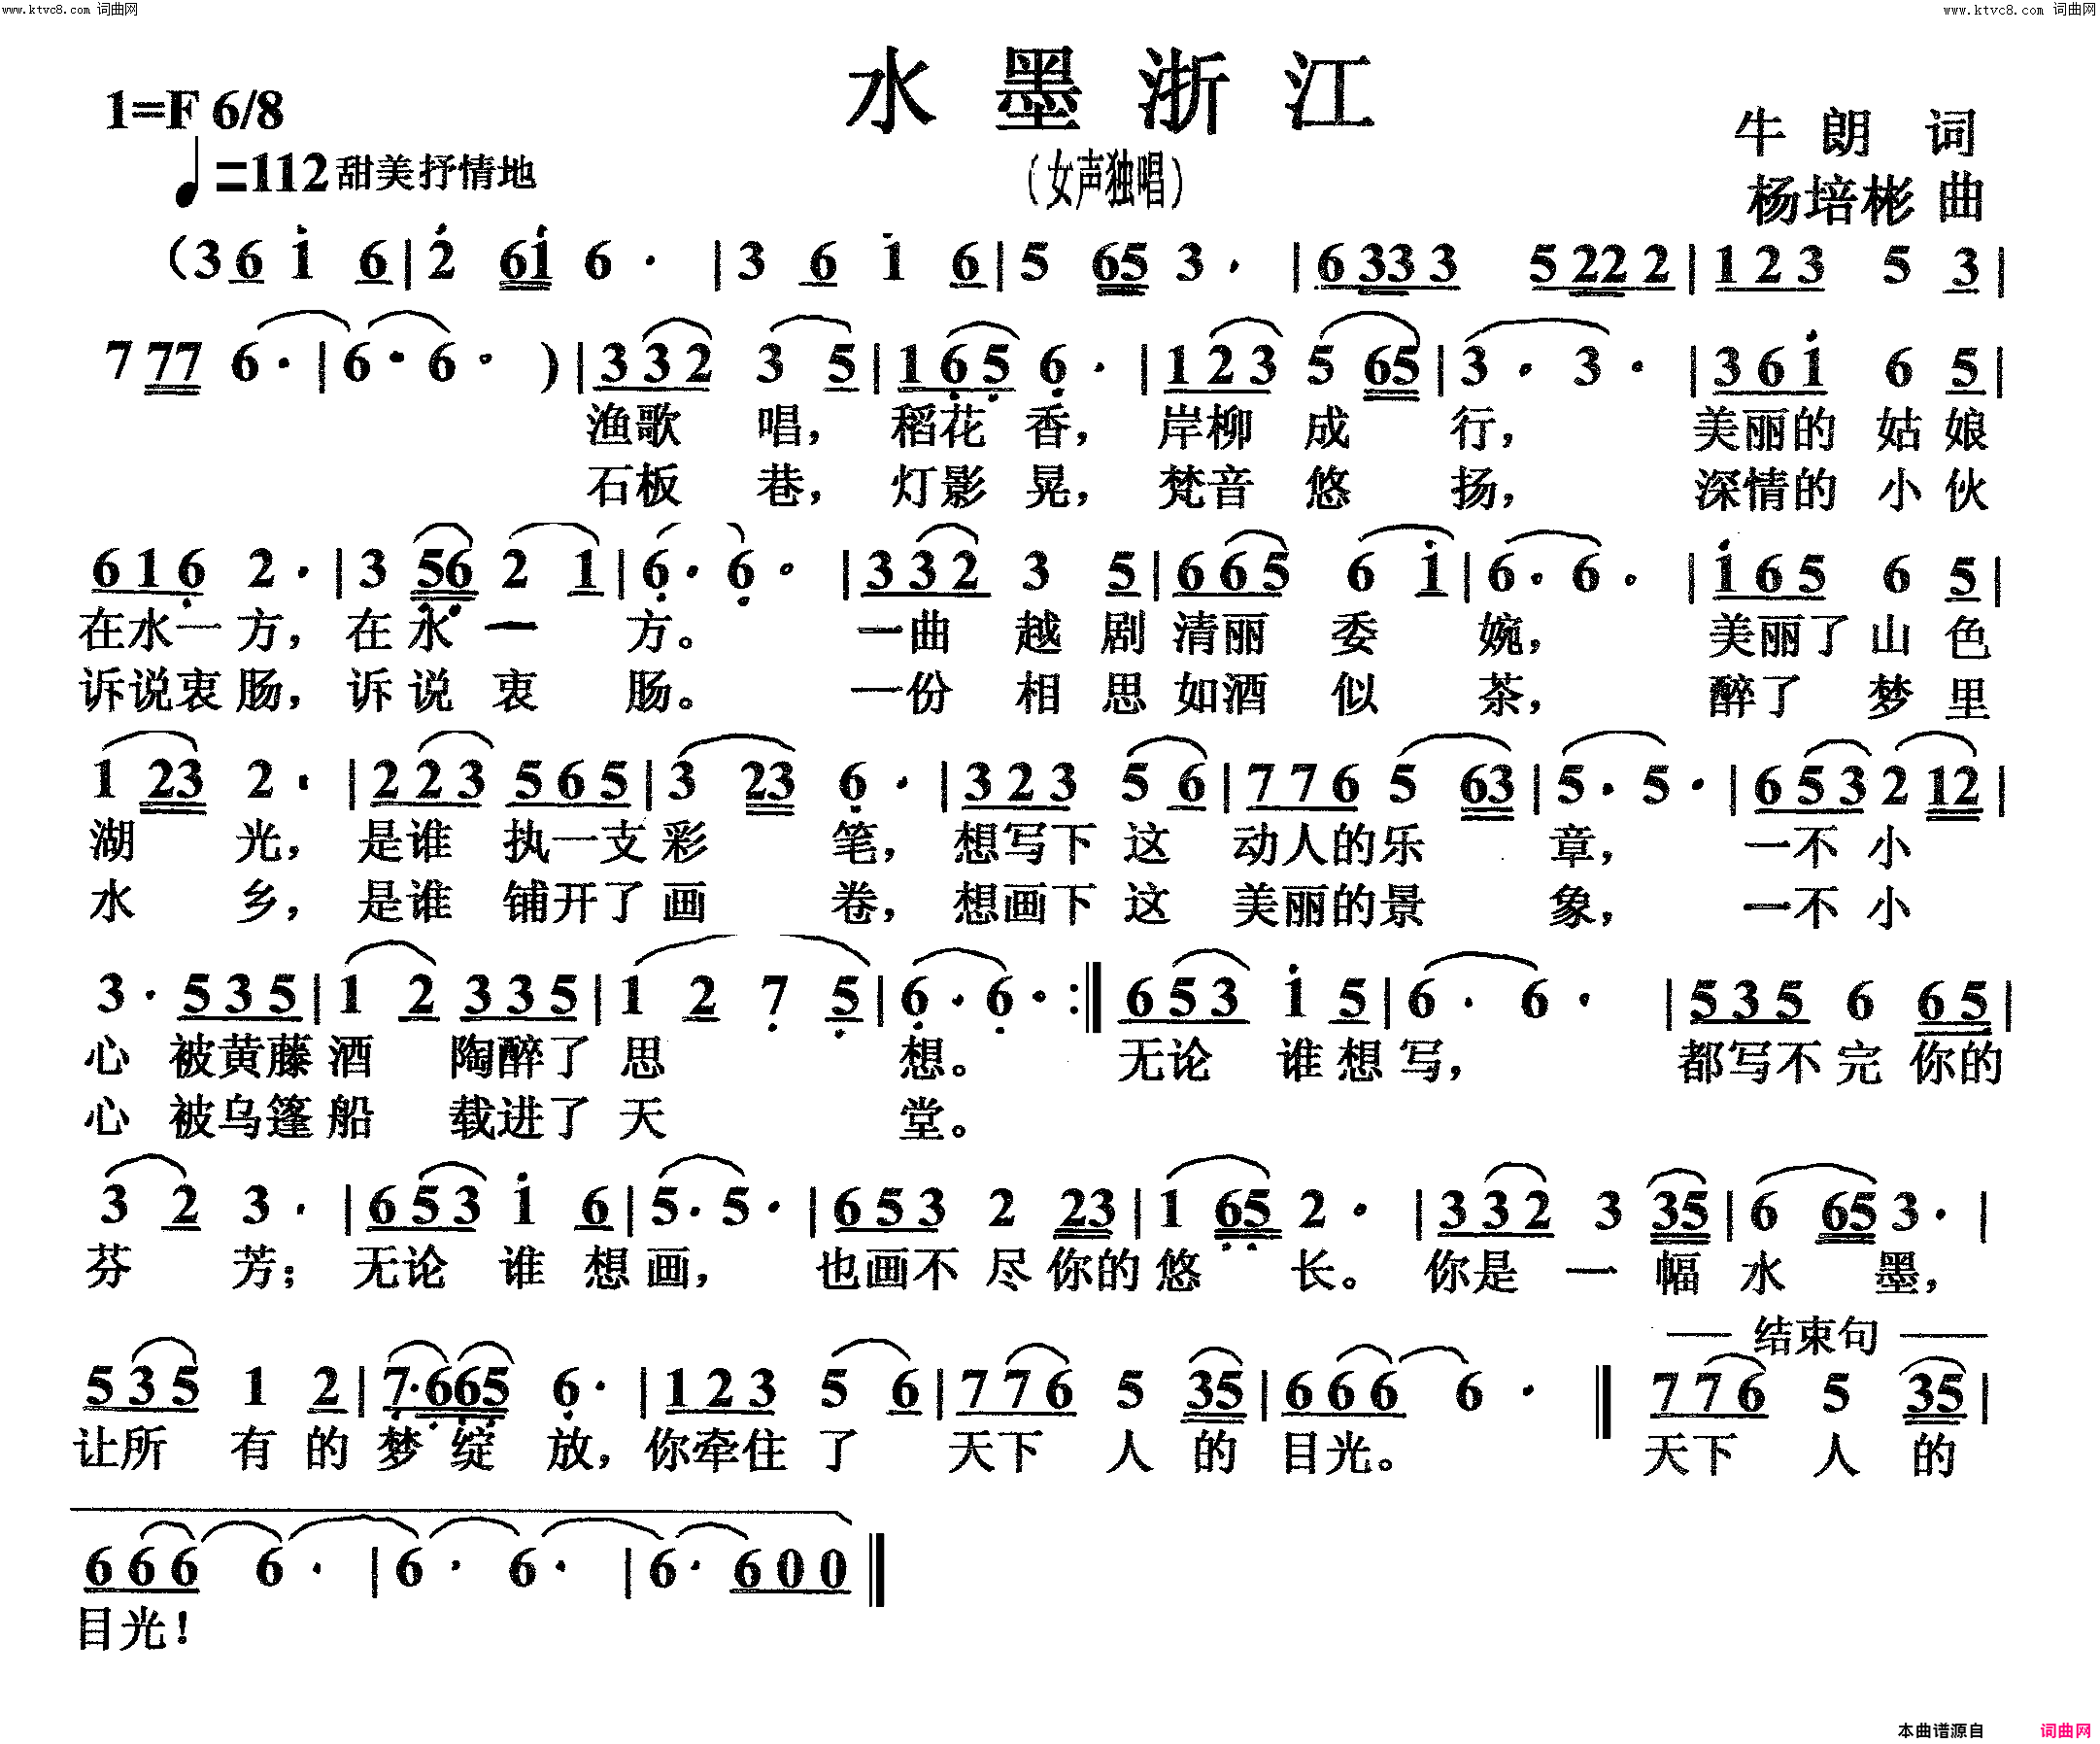 www.ktvc8.com 词曲网
www.ktvc8.com 词曲网
水墨浙江
1=F 6/8
牛朗 词
♩=112 甜美抒情地
(女声独唱)
杨培彬 曲
(3 6 i 6 | 2̇ 6i 6 · | 3 6 i 6 | 5 65 3 · | 6 33 3 5 22 2 | 1 2 3 5 3 |
7 77 6 · | 6 · 6 · ) | 3 3 2 3 5 | 1 6̣ 5̣ 6̣ · | 1 2 3 5 65 | 3 · 3 · | 3 6 i 6 5 |
渔歌 唱, 稻花 香, 岸柳 成 行, 美丽的 姑 娘
石板 巷, 灯影 晃, 梵音 悠 扬, 深情的 小 伙
6 1 6̣ 2 · | 3 5̣6̣ 2 1 | 6̣ · 6̣ · | 3 3 2 3 5 | 6 6 5 6 i | 6 · 6 · | i 6 5 6 5 |
在水一 方, 在 水 一 方。 一曲 越 剧 清丽 委 婉, 美丽了 山 色
诉说衷 肠, 诉 说 衷 肠。 一份 相 思 如酒 似 茶, 醉了 梦 里
1 23 2 · | 2 2 3 5 6 5 | 3 23 6̣ · | 3 2 3 5 6 | 7 7 6 5 63 | 5 · 5 · | 6 5 3 2 12 |
湖 光, 是谁 执一支 彩 笔, 想写下 这 动人的 乐 章, 一不 小
水 乡, 是谁 铺开了 画 卷, 想画下 这 美丽的 景 象, 一不 小
3 · 5 3 5 | 1 2 3 3 5 | 1 2 7̣ 5̣ | 6̣ · 6̣ · :‖ 6 5 3 i 5 | 6 · 6 · | 5 3 5 6 65 |
心 被黄藤 酒 陶醉了 思 想。 无论 谁 想 写, 都写不 完 你的
心 被乌篷 船 载进了 天 堂。
3 2 3 · | 6 5 3 i 6 | 5 · 5 · | 6 5 3 2 23 | 1 6̣5̣ 2 · | 3 3 2 3 35 | 6 65 3 · |
芬 芳; 无论 谁 想 画, 也画不 尽 你的 悠 长。 你是 一 幅 水 墨,
结束句
5 3 5 1 2 | 7̣ · 6̣6̣5̣ 6̣ · | 1 2 3 5 6 | 7 7 6 5 35 | 6 6 6 6 · ‖ 7 7 6 5 35 |
让所 有 的 梦 绽 放, 你牵住 了 天下 人 的 目光。 天下 人 的
6 6 6 6 · | 6 · 6 · | 6 · 6 0 0 ‖
目光!
本曲谱源自 词曲网